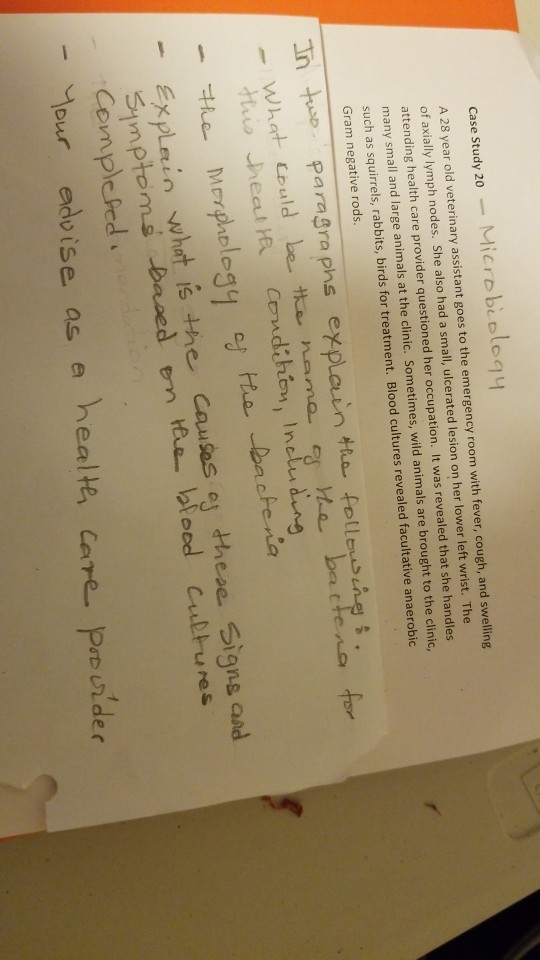 Case Study 20 - Microbiology
A 28 year old veterinary assistant goes to the emergency room with fever, cough, and swelling
of axially lymph nodes. She also had a small, ulcerated lesion on her lower left wrist. The
attending health care provider questioned her occupation. It was revealed that she handles
many small and large animals at the clinic. Sometimes, wild animals are brought to the clinic,
such as squirrels, rabbits, birds for treatment. Blood cultures revealed facultative anaerobic
Gram negative rods.
In two paragraphs explain the following:
- What could be the name of the bacteria for
this health condition, Including
- the Morphology of the bacteria
- Explain what is the causes of these signs and
Symptoms based on the blood cultures
Completed.
- Your advise as a health care provider